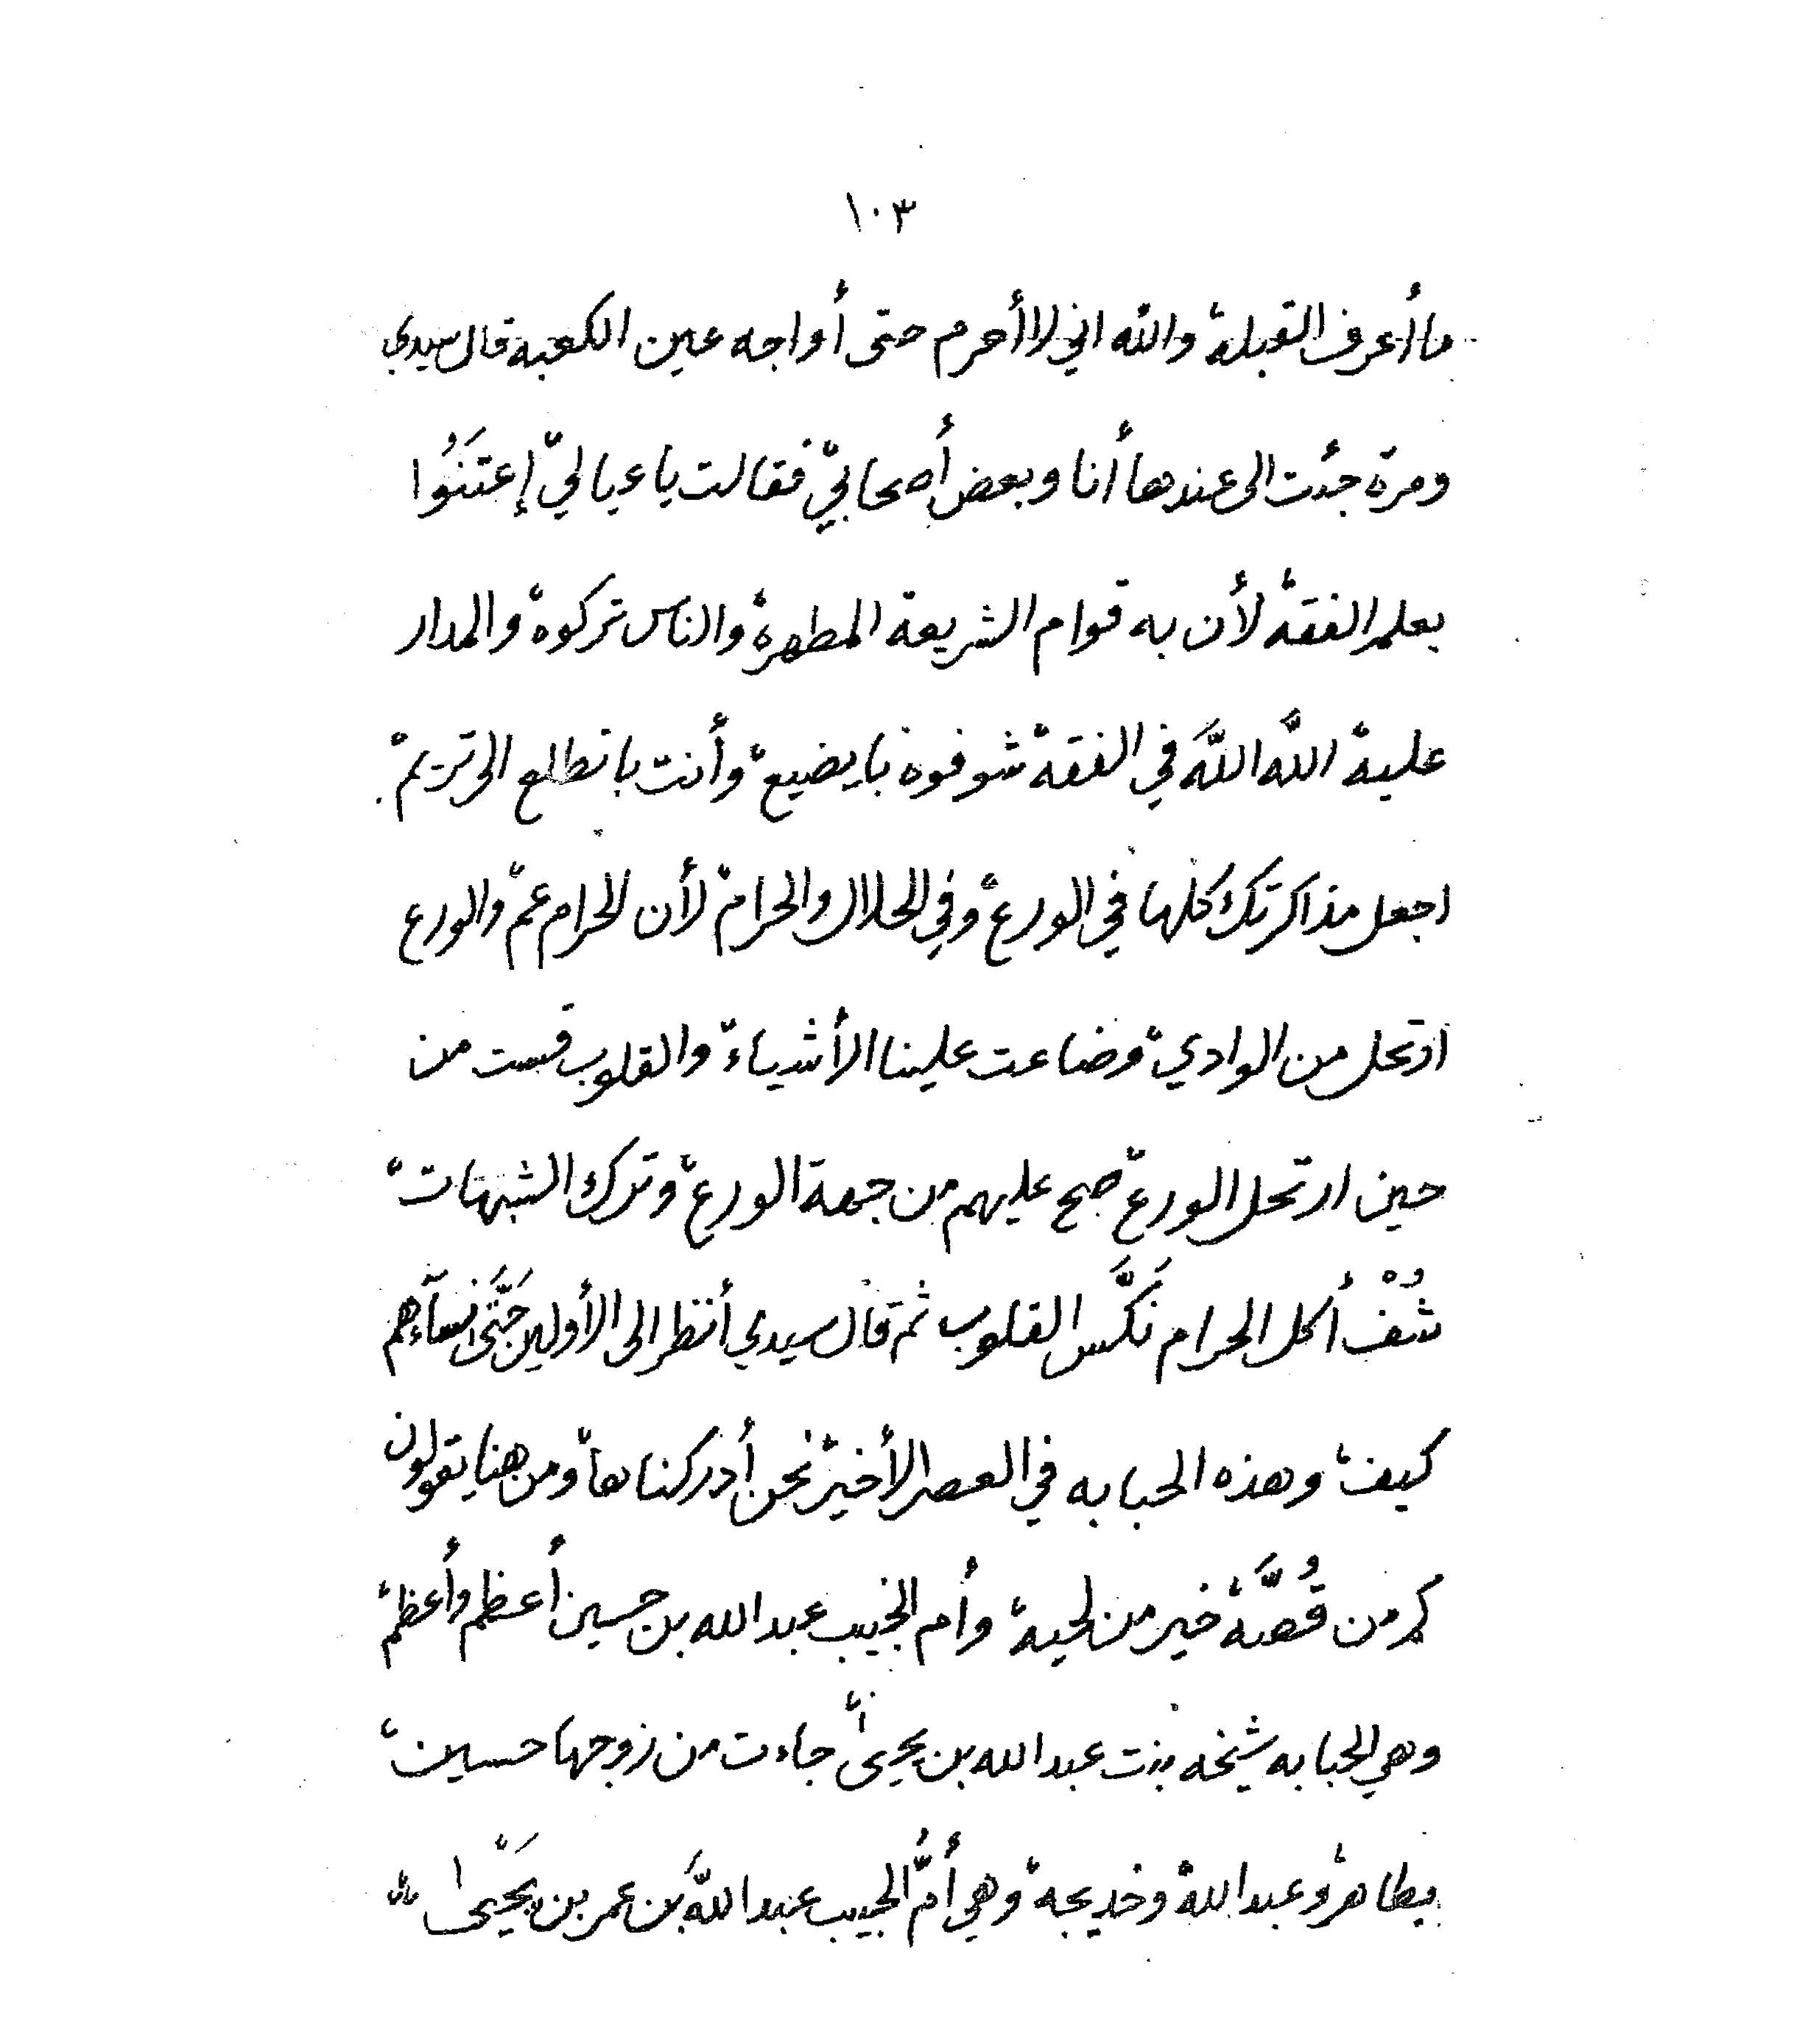 ١٠٣
ما أعرف القبلة، والله اني لا أحرم حتى أواجه عين الكعبة قال سيدي
ومرة جئت الى عندها أنا وبعض أصحابي، فقالت يا عيالي، إعتَنُوا
بعلم الفقه، لأن به قوام الشريعة المطهرة، والناس تركوه، والمدار
عليه، اللَّه اللَّهَ في الفقه، شوفوه بايضيع، وأنت باتطلع الى تريم،
اجعل مذاكرتك كلها في الورع، وفي الحلال والحرام، لأن الحرام عمّ، والورع
ارتحل من الوادي، وضاعت علينا الأشياء، والقلوب قست من
حين ارتحل الورع، صح عليهم من جهة الورع، وترك الشبهات،
شُفْ أكل الحرام نَكَّسَ القلوب، ثم قال سيدي أنظر الى الأولين حَتَّى نسآءهم
كيف، وهذه الحبابه في العصر الأخير، نحن أدركناها، ومن هنا يقولون
كم من قُصَّة، خير من لحية، وأم الحبيب عبدالله بن حسين أعظم وأعظم،
وهي الحبابه شيخه بنت عبدالله بن يحيى، جاءت من زوجها حسين،
بطاهر، وعبدالله، وخديجة، وهي أمُّ الحبيب عبداللَّه بن عمر بن يَحْيى،